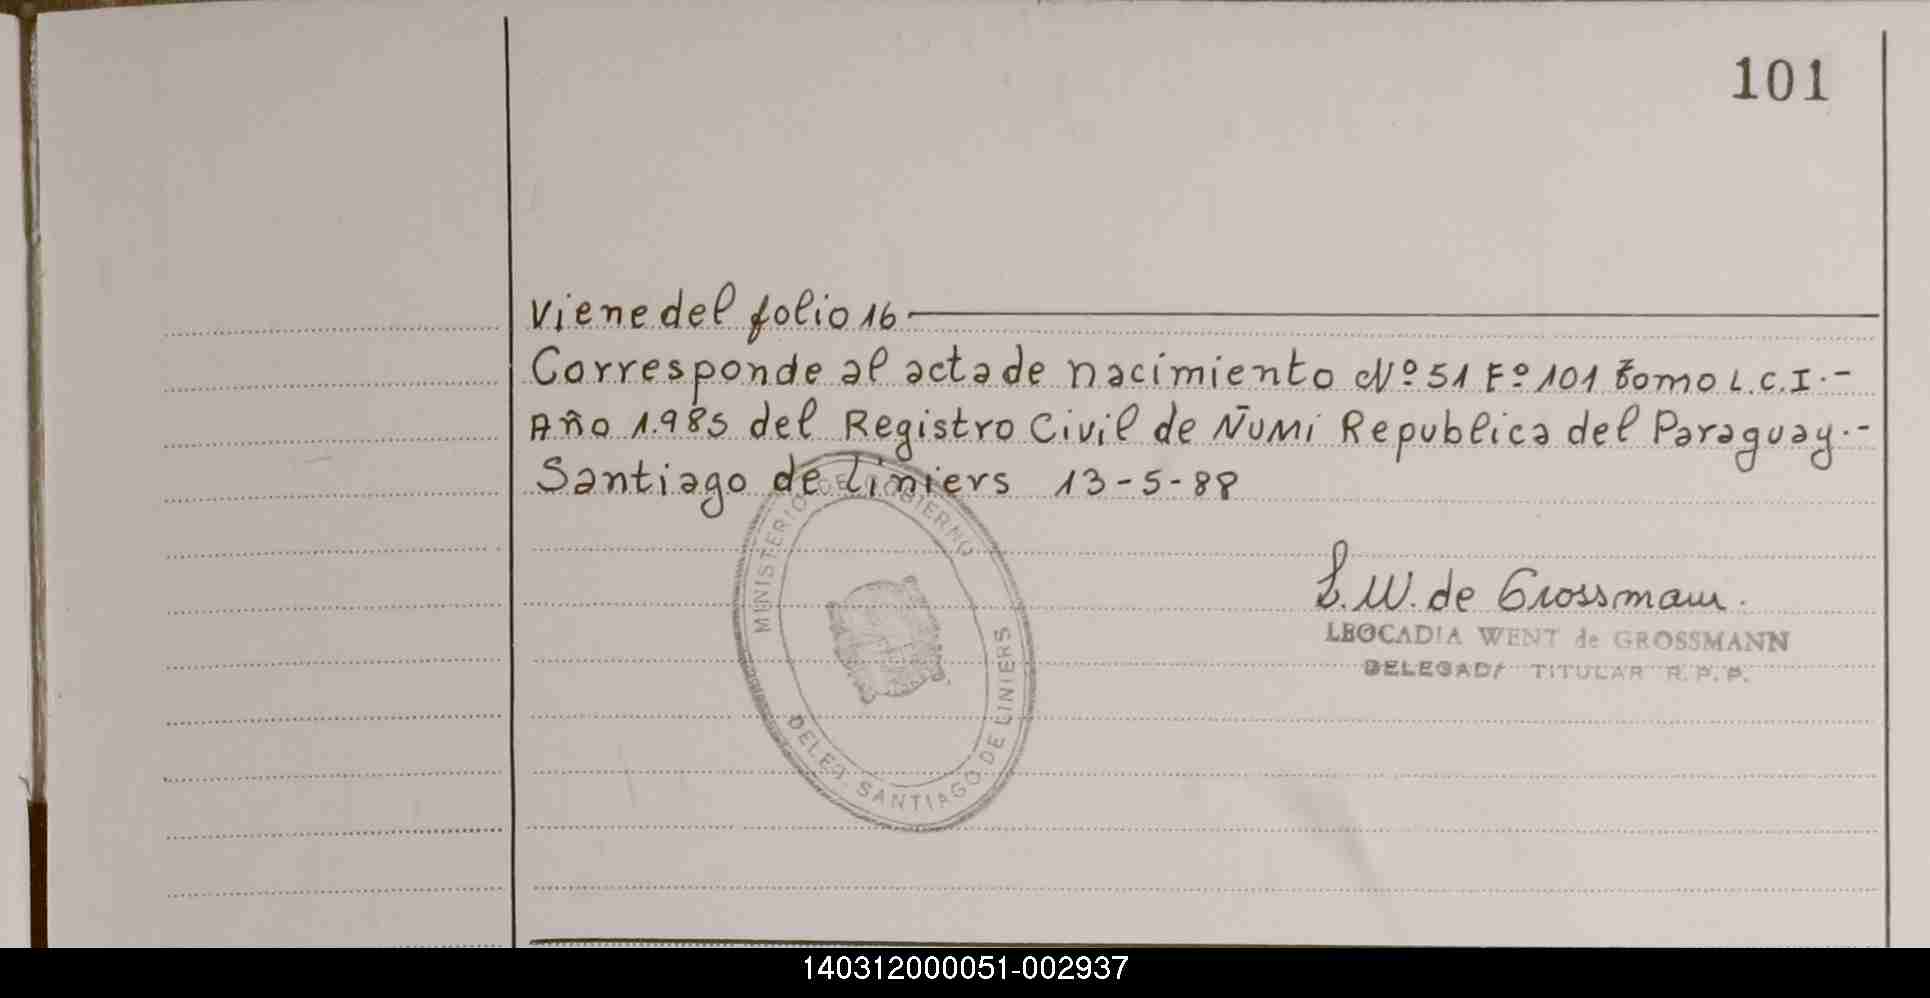 101
Viene del folio 16
Corresponde al acta de nacimiento Nº 51 Fº 101 Tomo L.C.I.-
Año 1.985 del Registro Civil de ÑUMI Republica del Paraguay.-
Santiago de Liniers 13-5-88
MINISTERIO DE GOBIERNO
DELEG. SANTIAGO DE LINIERS
L. W. de Grossmann.
LEOCADIA WENT de GROSSMANN
DELEGADA TITULAR R.P.P.
140312000051-002937